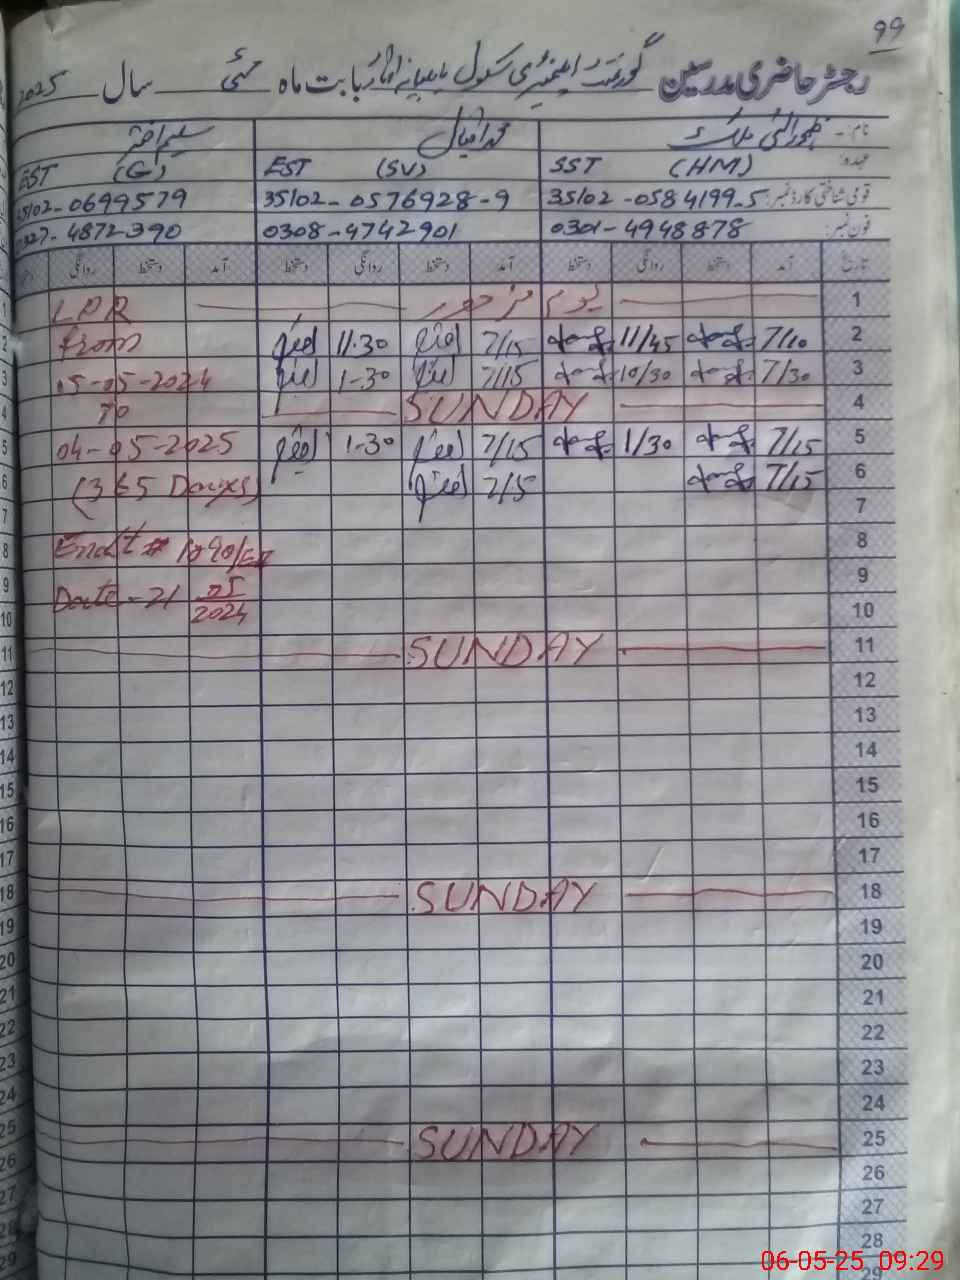 99
رجسٹر حاضری مدرسین گورنمنٹ ایلیمنٹری سکول بابت ماہ مئی سال 2025
نام:- ظہور الہٰی ملک محمد اقبال سلیم اختر
عہدہ: SST (HM) EST (SV) EST (G)
قومی شناختی کارڈ نمبر: 35102-0584199-5 35102-0576928-9 35102-0699579
فون نمبر: 0301-4948878 0308-4742901 0327-4872390
تاریخ آمد دستخط روانگی دستخط آمد دستخط روانگی دستخط آمد دستخط روانگی
1 یوم مزدور LPR
2 7/10 11/45 7/15 11.30 from
3 7/30 10/30 7/15 1-30 05-05-2024
4 SUNDAY To
5 7/15 1/30 7/15 1-30 04-05-2025
6 7/15 7/15 (365 Days)
7
8 Endt # 1090/EII
9 Date - 21 05
10 2024
11 SUNDAY
12
13
14
15
16
17
18 SUNDAY
19
20
21
22
23
24
25 SUNDAY
26
27
28
29
06-05-25 09:29